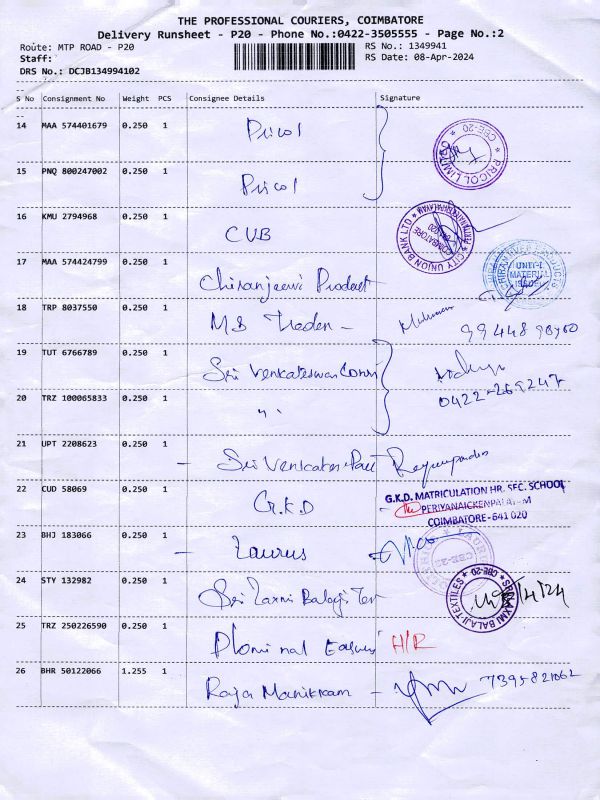 THE PROFESSIONAL COURIERS, COIMBATORE
Delivery Runsheet - P20 - Phone No.:0422-3505555 - Page No.:2
Route: MTP ROAD - P20 RS No.: 1349941
Staff: RS Date: 08-Apr-2024
DRS No.: DCJB134994102
S No Consignment No Weight PCS Consignee Details Signature
14 MAA 574401679 0.250 1 Pricol
PRICOL LIMITED CBE-20
15 PNQ 800247002 0.250 1 Pricol
16 KMU 2794968 0.250 1 CUB
CITY UNION BANK LTD COIMBATORE
17 MAA 574424799 0.250 1 Chiranjeevi Product
UNIT-I MATERIAL
18 TRP 8037550 0.250 1 M.B Traders -
19 TUT 6766789 0.250 1 Sri Venkateswara
20 TRZ 100065833 0.250 1 " 0422-269247
21 UPT 2208623 0.250 1 - Sri Venkates
22 CUD 58069 0.250 1 G.K.D
G.K.D. MATRICULATION HR. SEC. SCHOOL
PERIYANAICKENPALAYAM
COIMBATORE-641 020
23 BHJ 183066 0.250 1 - Taurus
24 STY 132982 0.250 1 Sri Laxmi Balaji Tex
SRI LAXMI BALAJI TEXTILES CBE-20
25 TRZ 250226590 0.250 1 H/R
26 BHR 50122066 1.255 1 Raja Manikkam - 7395821062